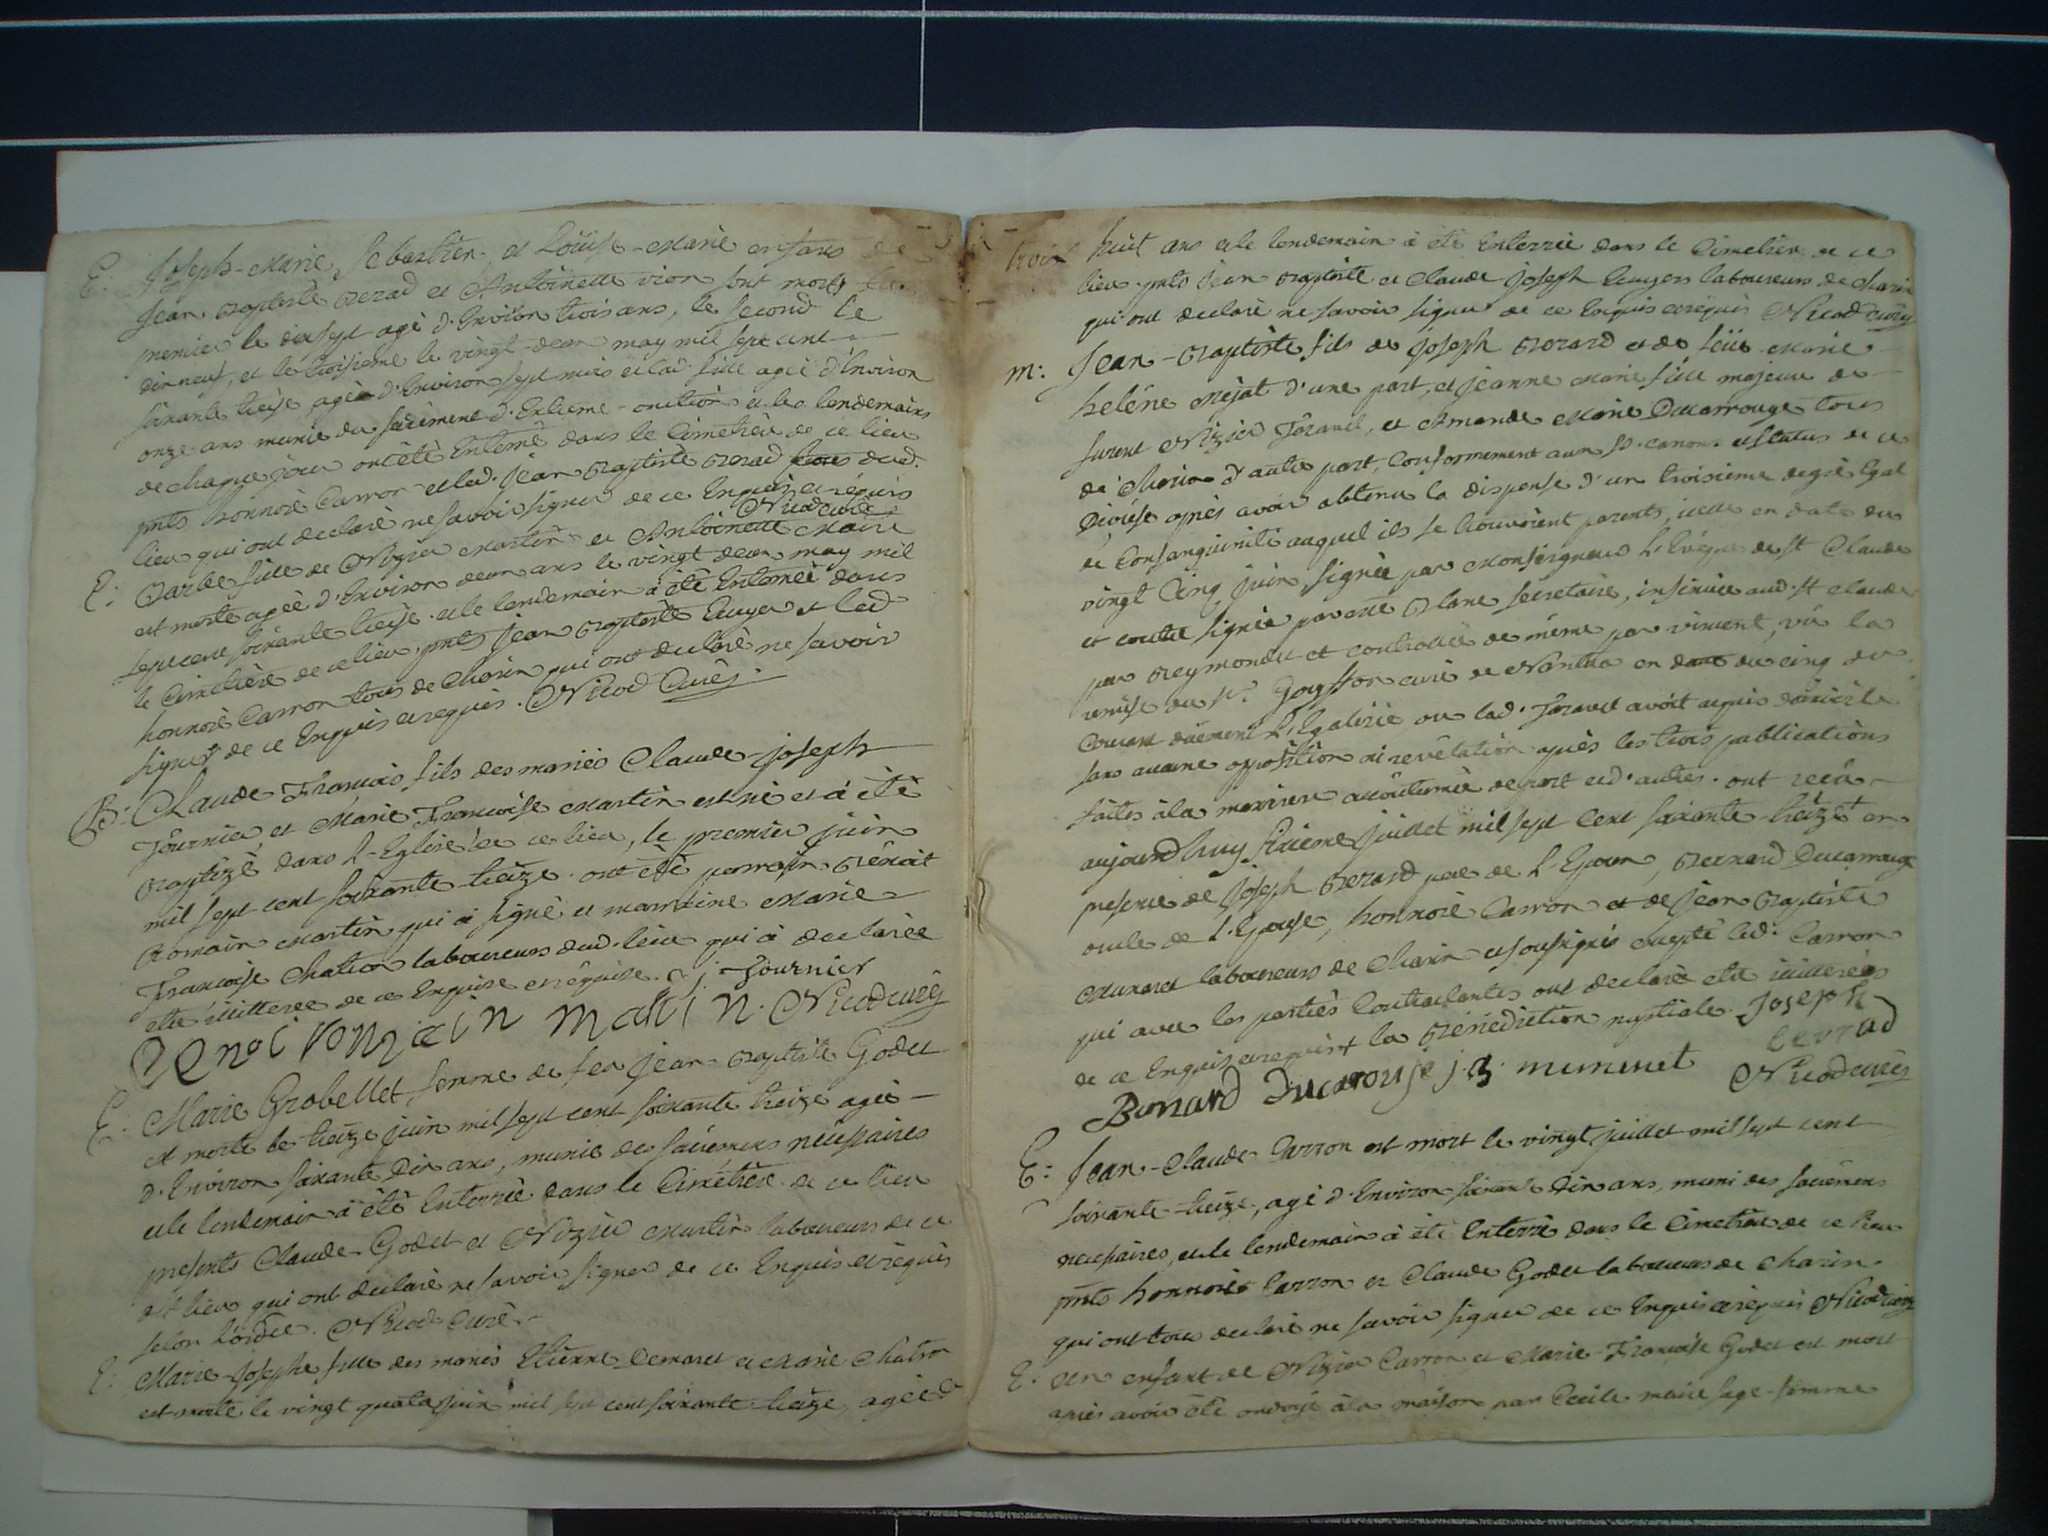 E. Joseph-Marie, Sebastien, et Loüise-Marie enfans de
Jean Baptiste Berad et Antoinette vion sont morts le
premier le dixsept agé d'Environ trois ans, le second le
dixneuf, et le troisieme le vingt-deux may mil sept cent
soixante treize, agée d'Environ sept mois et lad. fille agée d'Environ
onze ans munie du sacrement d'Extreme-onction et les lendemains
de chaque jour ont été Enterré dans le Cimetière de ce lieu
pnts honnoré Carron et led. Jean Baptiste Berad dud.
lieu qui ont declaré ne savoir signer de ce Enquis et réquis
Nicod curé
E. Barbe fille de Nizier Martin et Antoinette Maire
est morte agée d'Environ deux ans le vingt deux may mil
sept cent soixante treize. et le lendemain a été Enterrée dans
le Cimetière de ce lieu. pnts Jean Baptiste Leuger et led
honnoré Carron tous de Charix qui ont declaré ne savoir
signer de ce Enquis et requis. Nicod Curé.
B. Claude François fils des mariés Claude-joseph
Fournier, et Marie Françoise Martin est né et a été
Baptizé dans l'Eglise de ce lieu, le premier juin
mil sept cent soixante treize. ont été parrain Bénoit
Romain Martin qui a signé et marraine Marie
Françoise Chatron laboureurs dud. lieu qui a declarée
etre illitteree de ce Enquise et réquise. C. j. Fournier
Benoi romain Marti N. Nicod curé
E. Marie Grobellet femme de feu Jean-Baptiste Godet
est morte le treize juin mil sept cent soixante treize agée
d'Environ soixante Dix ans, munie des sacremens nécessaires
et le lendemain a été Enterrée dans le Cimétière de ce lieu
présents Claude Godet et Nizier Martin laboureurs de ce
dt lieu qui ont declaré ne savoir signer de ce Enquis et réquis
selon l'ordce. Nicod Curé.
E. Marie-Josephe fille des mariés Etienne Demaret et Marie Chatron
est morte le vingt quatre juin mil sept cent soixante treize, agée d
huit ans et le lendemain a été Enterrée dans le Cimetière de ce
lieu. pnts Jean Baptiste et Claude Joseph Leugers laboureurs de Charix
qui ont declaré ne savoir signer de ce Enquis et réquis Nicod curé
m. Jean-Baptiste fils de Joseph Berard et de feüe Marie
heléne Mejat d'une part, et Jeanne Marie fille majeure de
furent Nizier Jüravel, et Amande Marie Ducarrouge tous
de Charix d'autre part, Conformement aux St. canons et statuts de ce
Diocèse après avoir obtenu la dispense d'un troisieme degré Egal
de Consanguinité auquel ils se trouvoient parents, icelle en date du
vingt Cinq juin signée par Monseigneur l'Evèque de St Claude
et contre signée par Blanc secretaire, insinuée aud. St Claude
par Reymondet et controllée de même par vincent, vü la
remise du Sr. Goyffon curé de Nantua en date du cinq du
Courant düement l'Egalisée ou lad. Jüravel avoit aquis domicile
sans aucune opposition ni revélation après les trois publications
faites à la maniere accoûtumée de part et d'autre. ont reçu
aujourd'huy sixieme juillet mil sept cent soixante-treize en
presence de Joseph Berard pere de l'Epoux, Bernard Ducarrouge
oncle de l'Epouse, honnoré Carron et de Jean Baptiste
Munaret laboureurs de Charix et sousignés excepté led. Carron
qui avec les parties Contractantes ont declaré etre illitterées
de ce Enquis et requis la Bénédiction nuptiale. Joseph
berrad
Bernard Ducarouje j. B. mununet Nicod curé
E. Jean-Claude Carron est mort le vingt juillet mil sept cent
soixante-treize, agé d'Environ soixante Dix ans, muni des sacremens
necessaires, et le lendemain a été Enterré dans le Cimetière de ce lieu
pnts honnoré Carron et Claude Godet laboureurs de Charix
qui ont tous declaré ne savoir signer de ce Enquis et réquis Nicod curé
E. Un enfant de Nizier Carron et Marie-Françoise Godet est mort
après avoir été ondoyé à la maison par Cécile maire sage-femme